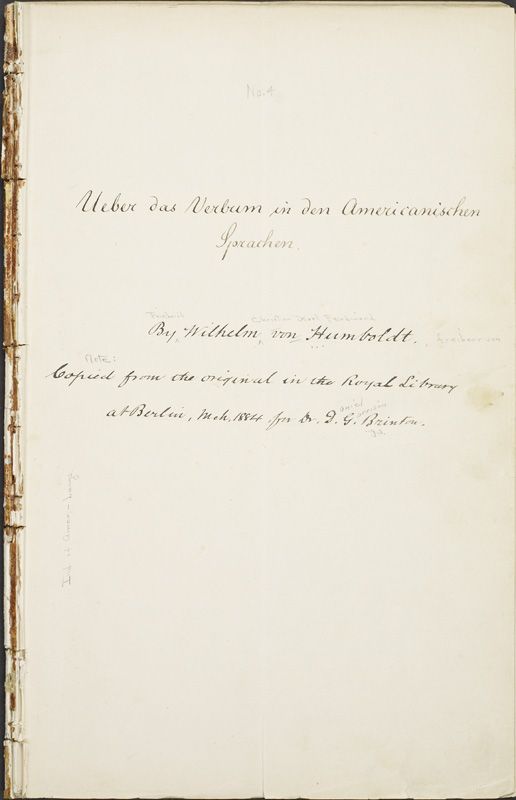 No. 4
Ueber das Verbum in den Americanischen
Sprachen.
Friedrich Christian Karl Ferdinand
By Wilhelm von Humboldt. , freiherr von
Note:
Copied from the original in the Royal Library
at Berlin, Mch, 1884 for Dr. D. G. Brinton.